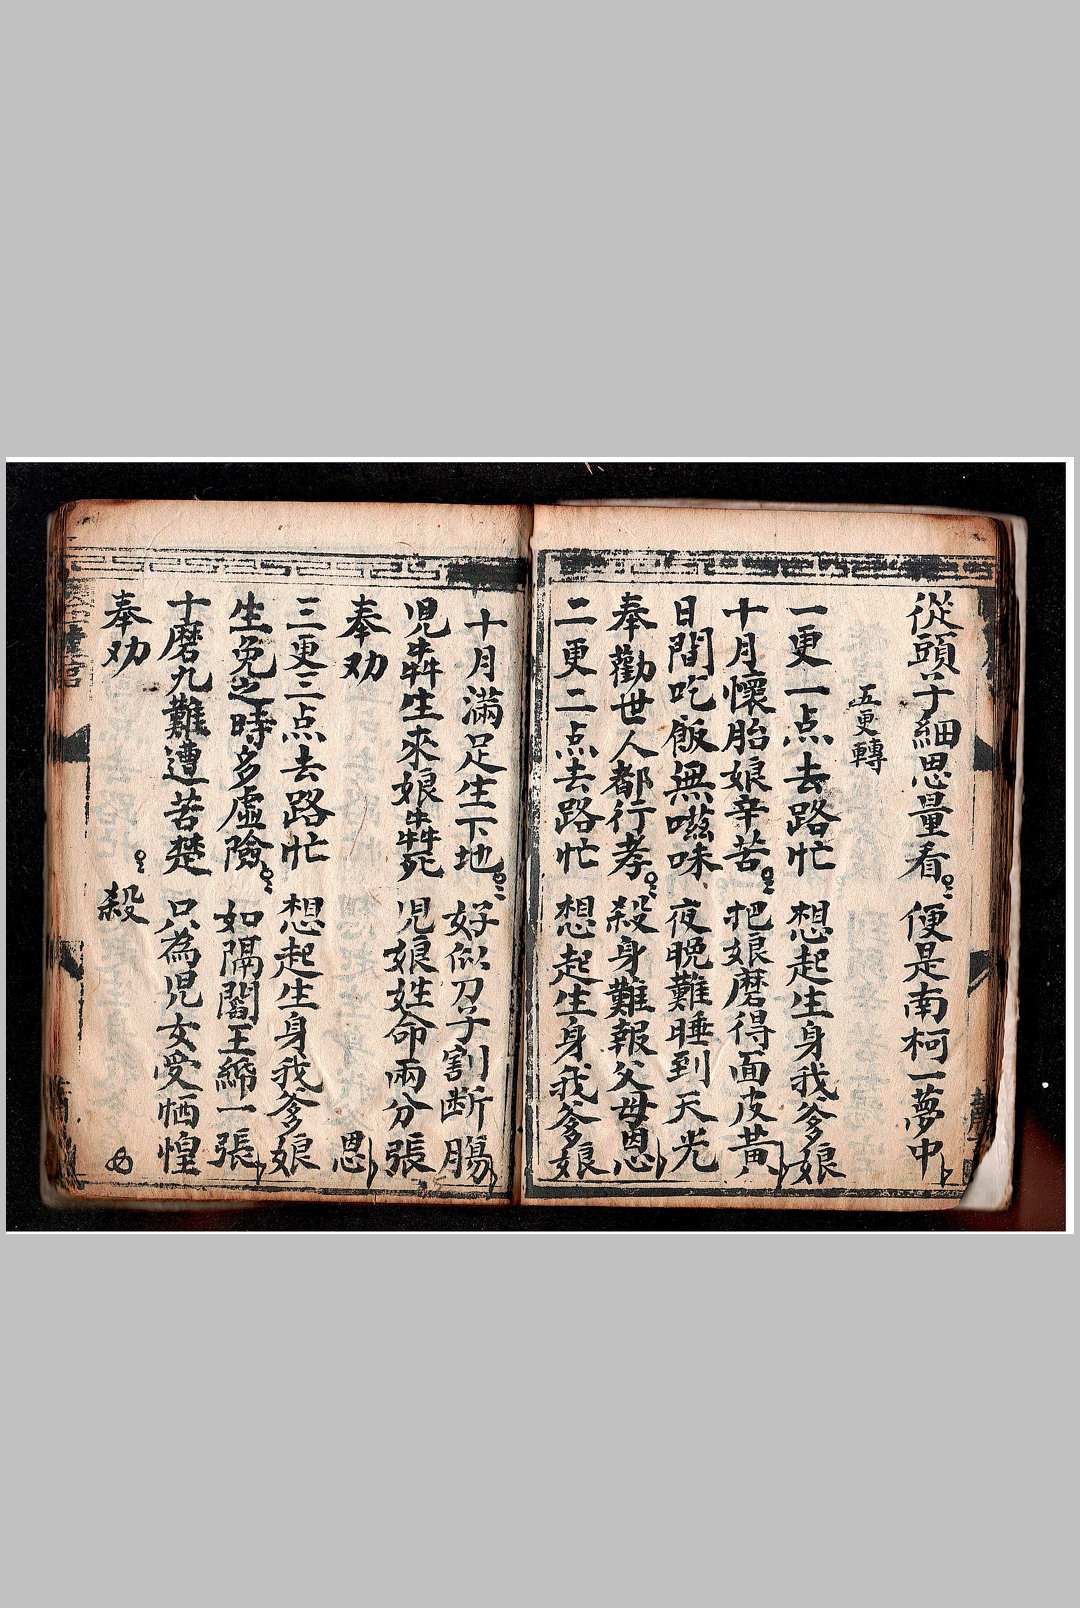 從頭子細思量看 便是南柯一夢中
五更轉
一更一点去路忙 想起生身我爹娘
十月懷胎娘辛苦 把娘磨得面皮黃
日間吃飯無嗞味 夜晚難睡到天光
奉勸世人都行孝 殺身難報父母恩
二更二点去路忙 想起生身我爹娘
十月滿足生下地 好似刀子割断腸
児犇生來娘犇死 児娘姓命兩分張
奉劝 恩
三更三点去路忙 想起生身我爹娘
生免之時多虛險 如隔閻王紙一張
十磨九難遭苦楚 只為児女受恓惶
奉劝 殺